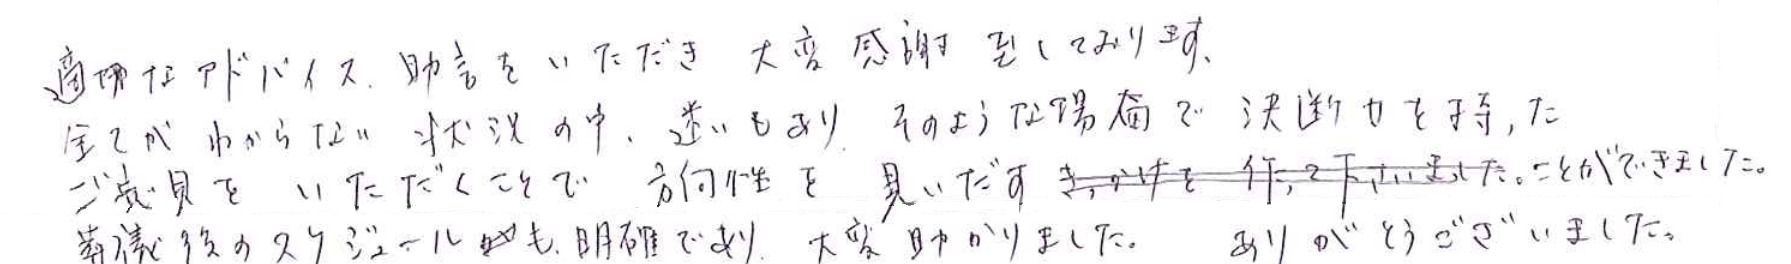 適切なアドバイス、助言をいただき 大変感謝致しております。
全てがわからない状況の中、迷いもあり、そのような場面で決断力を持った
ご意見をいただくことで方向性を見いだす きっかけを作って下さいました。ことができました。
葬儀後のスケジュールも、明確であり、大変助かりました。 ありがとうございました。